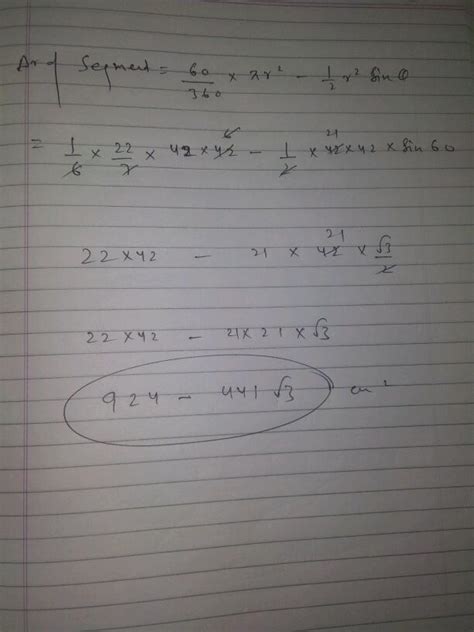 Ar of Segment = 60/360 × πr² - 1/2 r² Sin θ
= 1/6 × 22/7 × 42 × 42 6 - 1/2 × 42 21 × 42 × Sin 60
22 × 42 - 21 × 42 21 × √3/2
22 × 42 - 21 × 21 × √3
924 - 441 √3 cm²